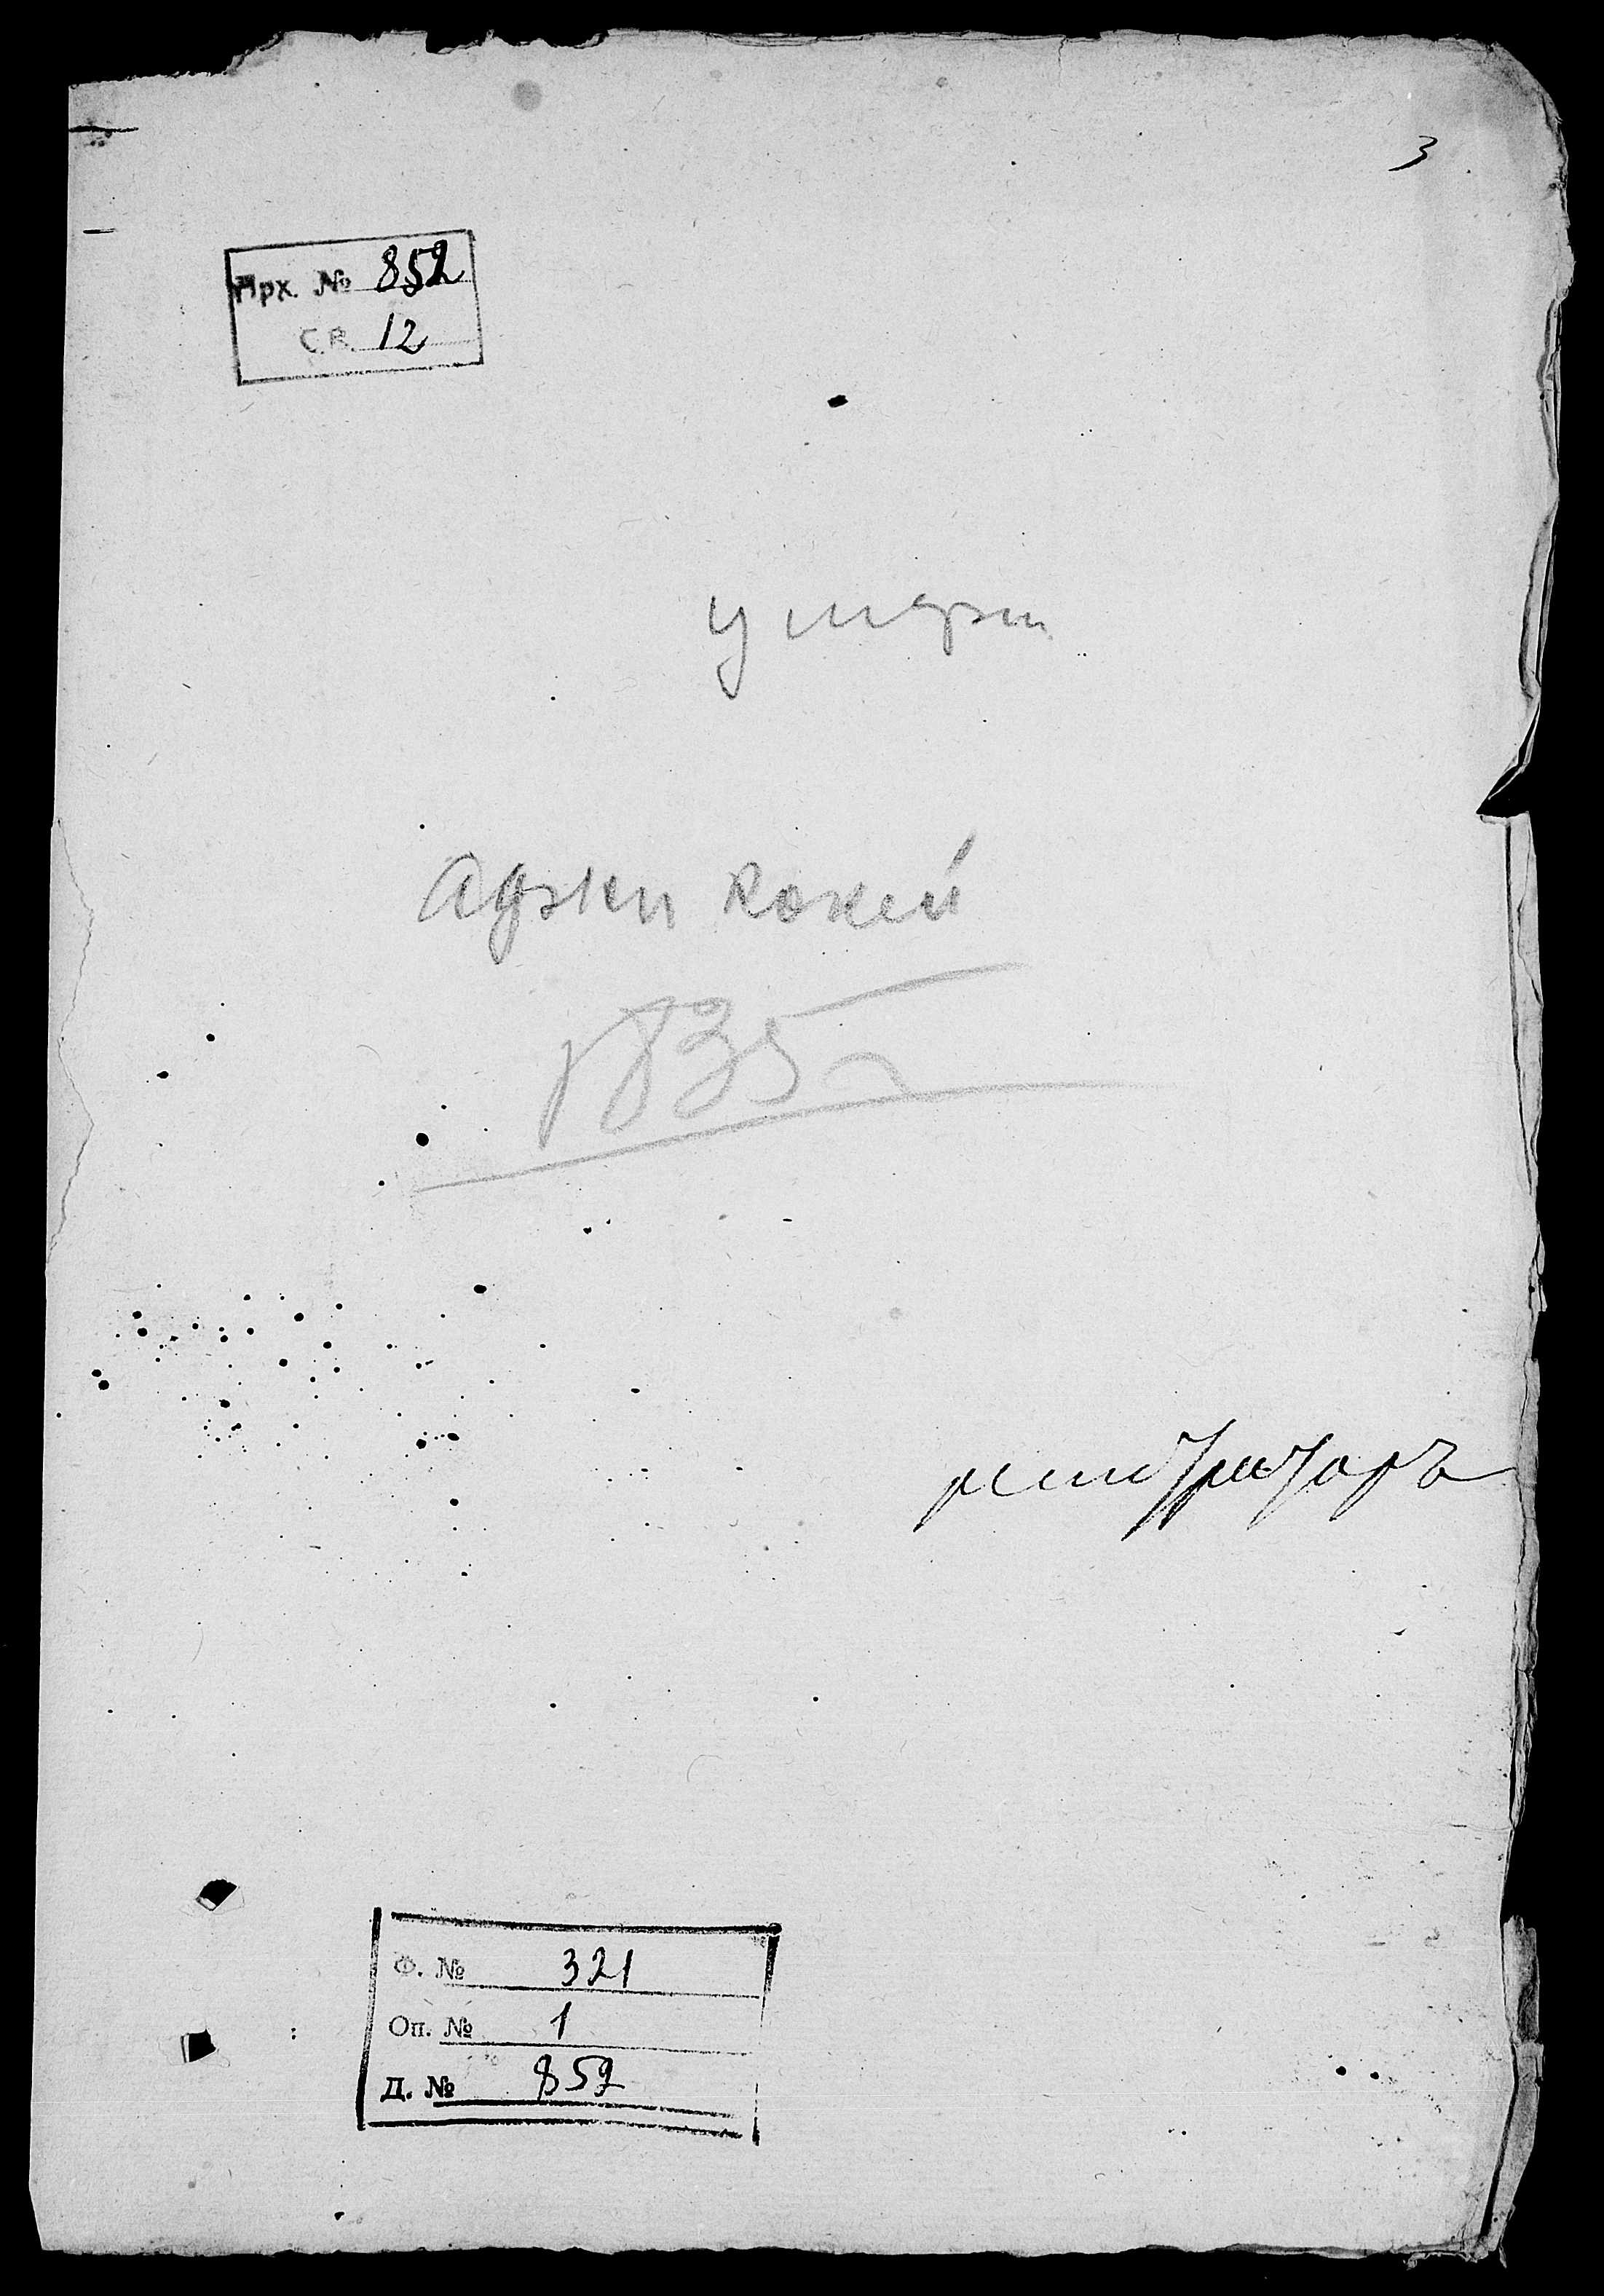 3
Арх. № 852
С.В. 12
умерш
Аджи Кокей
1835 г
регистраторъ
Ф. № 321
Оп. № 1
Д. № 852